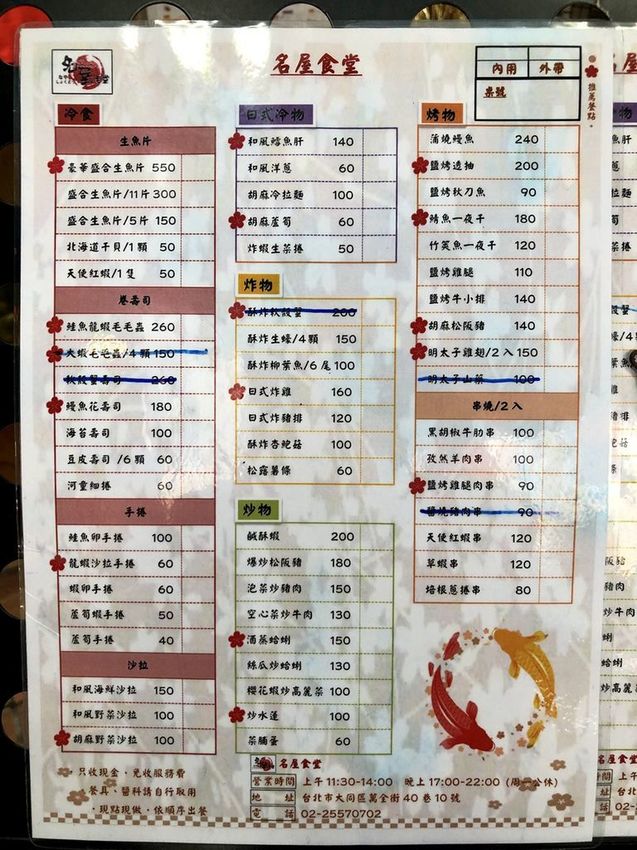 名屋食堂
名屋食堂
內用 外帶
桌號
推薦餐點
冷食
生魚片
豪華盛合生魚片 550
盛合生魚片/11片 300
盛合生魚片/5片 150
北海道干貝/1顆 50
天使紅蝦/1隻 50
卷壽司
鮭魚龍蝦毛毛蟲 260
大蝦毛毛蟲/4顆 150
軟殼蟹壽司 260
鰻魚花壽司 180
海苔壽司 100
豆皮壽司 /6顆 60
河童細捲 60
手捲
鮭魚卵手捲 100
龍蝦沙拉手捲 60
蝦卵手捲 60
蘆筍蝦手捲 50
蘆筍手捲 40
沙拉
和風海鮮沙拉 150
和風野菜沙拉 100
胡麻野菜沙拉 100
只收現金、免收服務費
餐具、醬料請自行取用
現點現做、依順序出餐
日式冷物
和風鱈魚肝 140
和風洋蔥 60
胡麻冷拉麵 100
胡麻蘆筍 60
炸蝦生菜捲 50
炸物
酥炸軟殼蟹 200
酥炸生蠔/4顆 150
酥炸柳葉魚/6尾 100
日式炸雞 160
日式炸豬排 120
酥炸杏鮑菇 100
松露薯條 60
炒物
鹹酥蝦 200
爆炒松阪豬 180
泡菜炒豬肉 150
空心菜炒牛肉 130
酒蒸蛤蜊 150
絲瓜炒蛤蜊 130
櫻花蝦炒高麗菜 100
炒水蓮 100
菜脯蛋 60
烤物
蒲燒鰻魚 240
鹽烤透抽 200
鹽烤秋刀魚 90
鯖魚一夜干 180
竹筴魚一夜干 120
鹽烤雞腿 110
鹽烤牛小排 140
胡麻松阪豬 140
明太子雞翅/2入 150
明太子山藥 100
串燒/2入
黑胡椒牛肋串 100
孜然羊肉串 100
鹽烤雞腿肉串 90
醬燒豬肉串 90
天使紅蝦串 120
草蝦串 120
培根蔥捲串 80
名屋食堂
營業時間 上午 11:30-14:00 晚上 17:00-22:00 (周一公休)
地址 台北市大同區萬全街 40 巷 10 號
電話 02-25570702